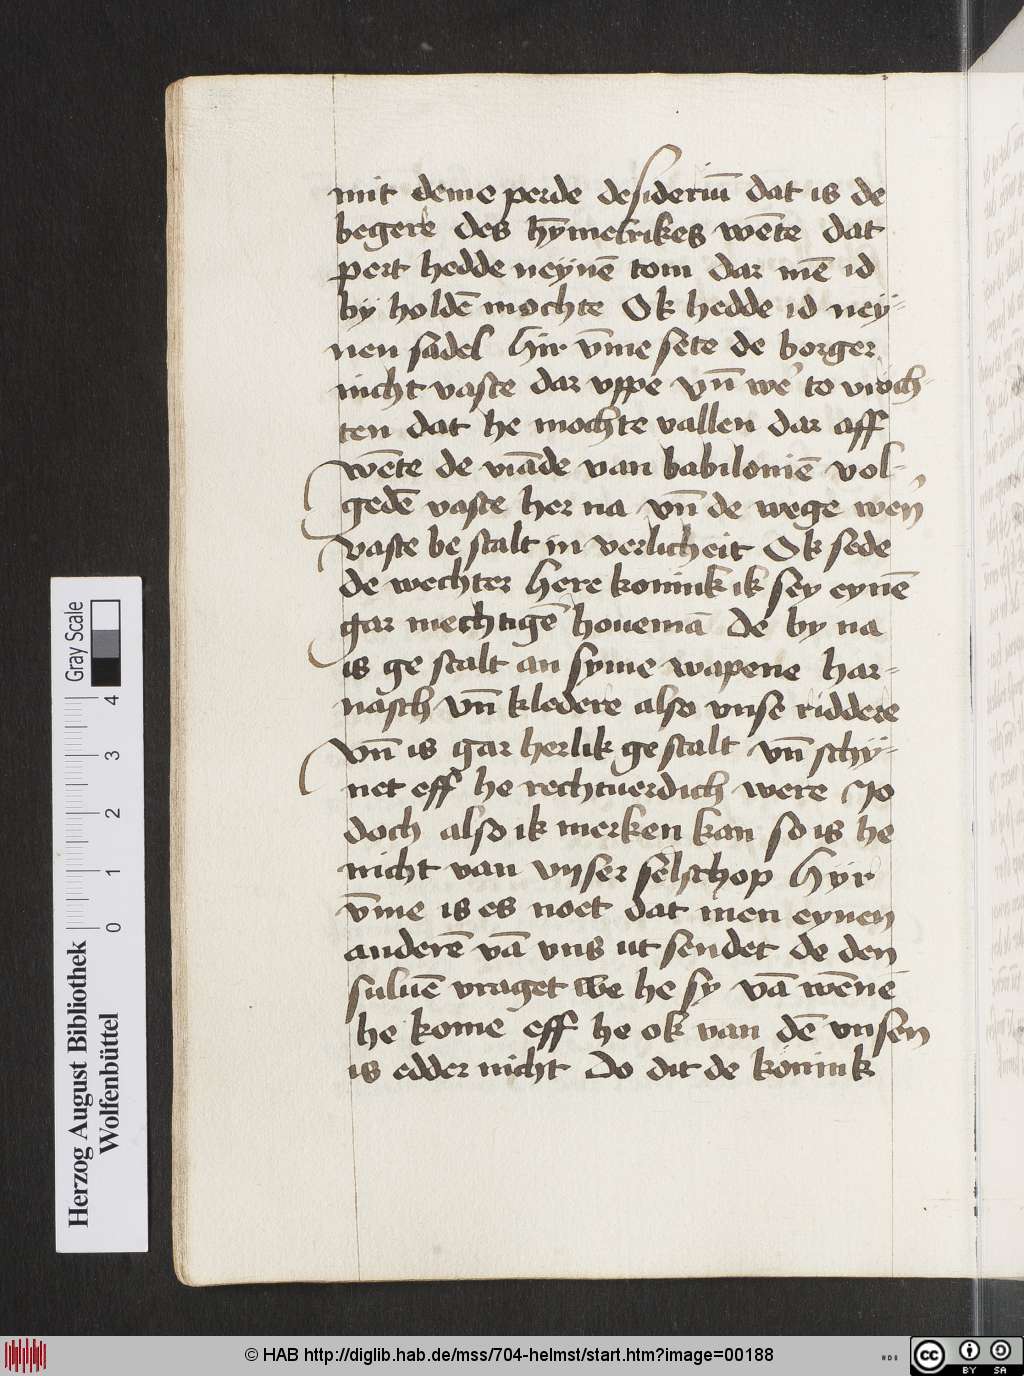 mit deme perde desideriū dat is de
begere des hȳmelrikes wēte dat
pert hedde neynē tom dar mē id
by holdē mochte Ok hedde id ney-
nen sadel Hir v̄me sete de borger
nicht vaste dar vppe vn̄ we' to vroch-
ten dat he mochte vallen dar aff
wēte de viāde van babiloniē vol-
gedē vaste her na vn̄ de wege wen'
vaste be stalt in verlicheit Ok sede
de wechter here konink ik sey eynē
gar mechtigē houemā de by na
is ge stalt an syme wapene har-
nasch vn̄ kledere also vnse riddere
vn̄ is gar herlik ge stalt vn̄ schy-
net eff he rechtuerdich were Jo
doch also ik merken kan so is he
nicht van vnser selschop Hyr
v̄me is es noet dat men eynen
anderē vā vns ut sendet de den
suluē vraget we he sy vā wēne
he kome eff he ok van dē vnsen
is edder nicht Do dit de konink
Herzog August Bibliothek
Wolfenbüttel
Gray Scale
0 1 2 3 4
© HAB http://diglib.hab.de/mss/704-helmst/start.htm?image=00188
cc BY SA